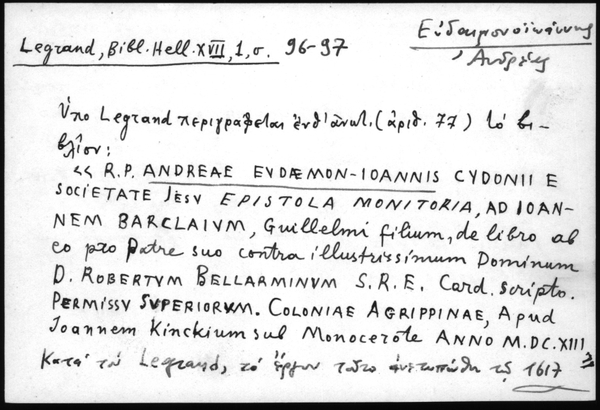 Εὐδαιμονοϊωάννης
Ἀνδρέας
Legrand, Bibl. Hell. XVII, 1, σ. 96-97
Ὑπὸ Legrand περιγράφεται ἐνθ' ἀνωτ. (ἀριθ. 77) τὸ βι-
βλίον:
<< R.P. ANDREAE EVDÆMON-IOANNIS CYDONII E
SOCIETATE JESV EPISTOLA MONITORIA, AD IOAN-
NEM BARCLAIVM, Guillelmi filium, de libro ab
eo pro Patre suo contra illustrissimum Dominum
D. ROBERTVM BELLARMINVM S.R.E. Card. scripto.
PERMISSV SUPERIORVM. COLONIAE AGRIPPINAE, Apud
Joannem Kinckium sub Monocerote ANNO M.DC.XIII
Κατὰ τὸν Legrand, τὸ ἔργον τοῦτο ἀνετυπώθη τῷ 1617